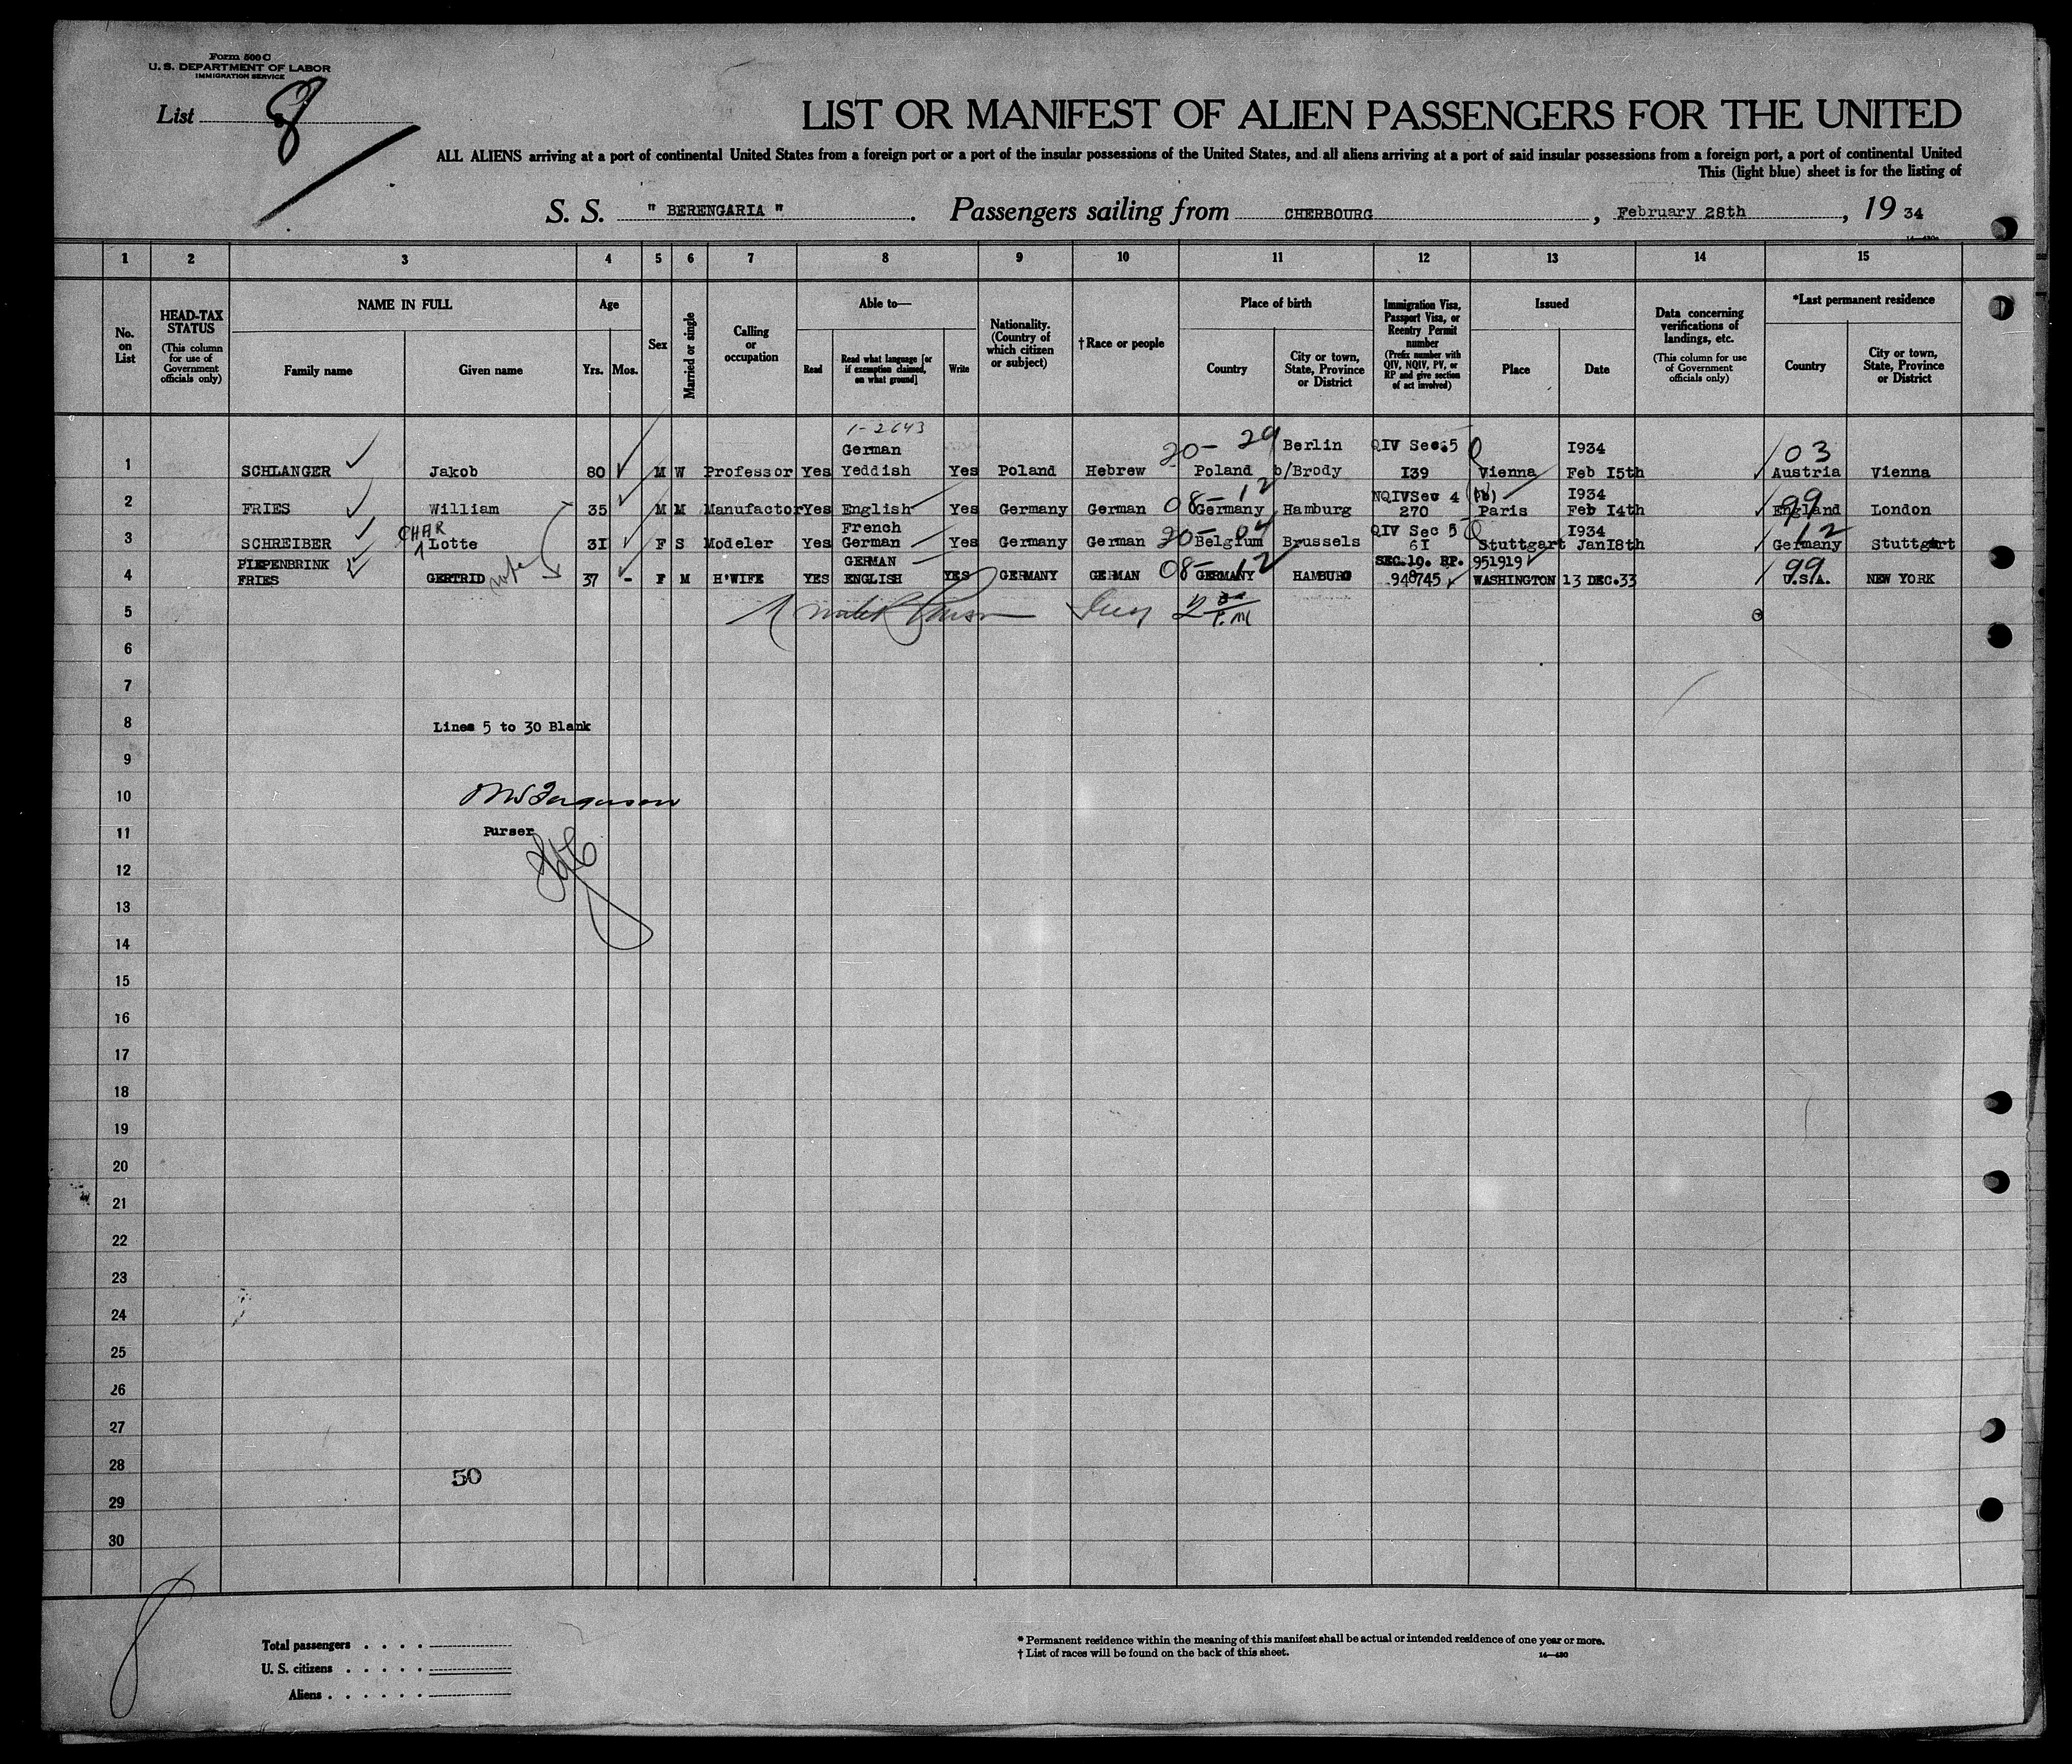 Form 500 C
U. S. DEPARTMENT OF LABOR
IMMIGRATION SERVICE
List 8
LIST OR MANIFEST OF ALIEN PASSENGERS FOR THE UNITED
ALL ALIENS arriving at a port of continental United States from a foreign port or a port of the insular possessions of the United States, and all aliens arriving at a port of said insular possessions from a foreign port, a port of continental United
This (light blue) sheet is for the listing of
S. S. " BERENGARIA " . Passengers sailing from CHERBOURG , February 28th , 19 34
1 2 3 4 5 6 7 8 9 10 11 12 13 14 15
No. on List
HEAD-TAX STATUS (This column for use of Government officials only)
NAME IN FULL
Family name
Given name
Age
Yrs. Mos.
Sex
Married or single
Calling or occupation
Able to—
Read
Read what language [or if exemption claimed, on what ground]
Write
Nationality. (Country of which citizen or subject)
†Race or people
Place of birth
Country
City or town, State, Province or District
Immigration Visa, Passport Visa, or Reentry Permit number (Prefix number with QIV, NQIV, PV, or RP and give section of act involved)
Issued
Place
Date
Data concerning verifications of landings, etc. (This column for use of Government officials only)
*Last permanent residence
Country
City or town, State, Province or District
1-2643
German 20- 29 Berlin QIV Sec.5 I934 03
1 SCHLANGER Jakob 80 M W Professor Yes Yeddish Yes Poland Hebrew Poland b/Brody I39 Vienna Feb I5th Austria Vienna
08-12 NQIVSec 4 (b) I934 99
2 FRIES William 35 M M Manufactor Yes English Yes Germany German Germany Hamburg 270 Paris Feb I4th England London
CHAR French 20-04 QIV Sec 5 I934 12
3 SCHREIBER Lotte 3I F S Modeler Yes German Yes Germany German Belgium Brussels 6I Stuttgart Jan I8th Germany Stuttgart
PIEPENBRINK GERMAN 08-12 SEC.10. RP. 951919 99
4 FRIES GERTRID note 37 - F M H'WIFE YES ENGLISH YES GERMANY GERMAN GERMANY HAMBURG 948745 WASHINGTON 13 DEC.33 U.S.A. NEW YORK
5
6
7
8 Lines 5 to 30 Blank
9
10 Ferguson
11 Purser
12
13
14
15
16
17
18
19
20
21
22
23
24
25
26
27
28 50
29
30
8
Total passengers . . . .
U. S. citizens . . . . .
Aliens . . . . . .
* Permanent residence within the meaning of this manifest shall be actual or intended residence of one year or more.
† List of races will be found on the back of this sheet. 14—430